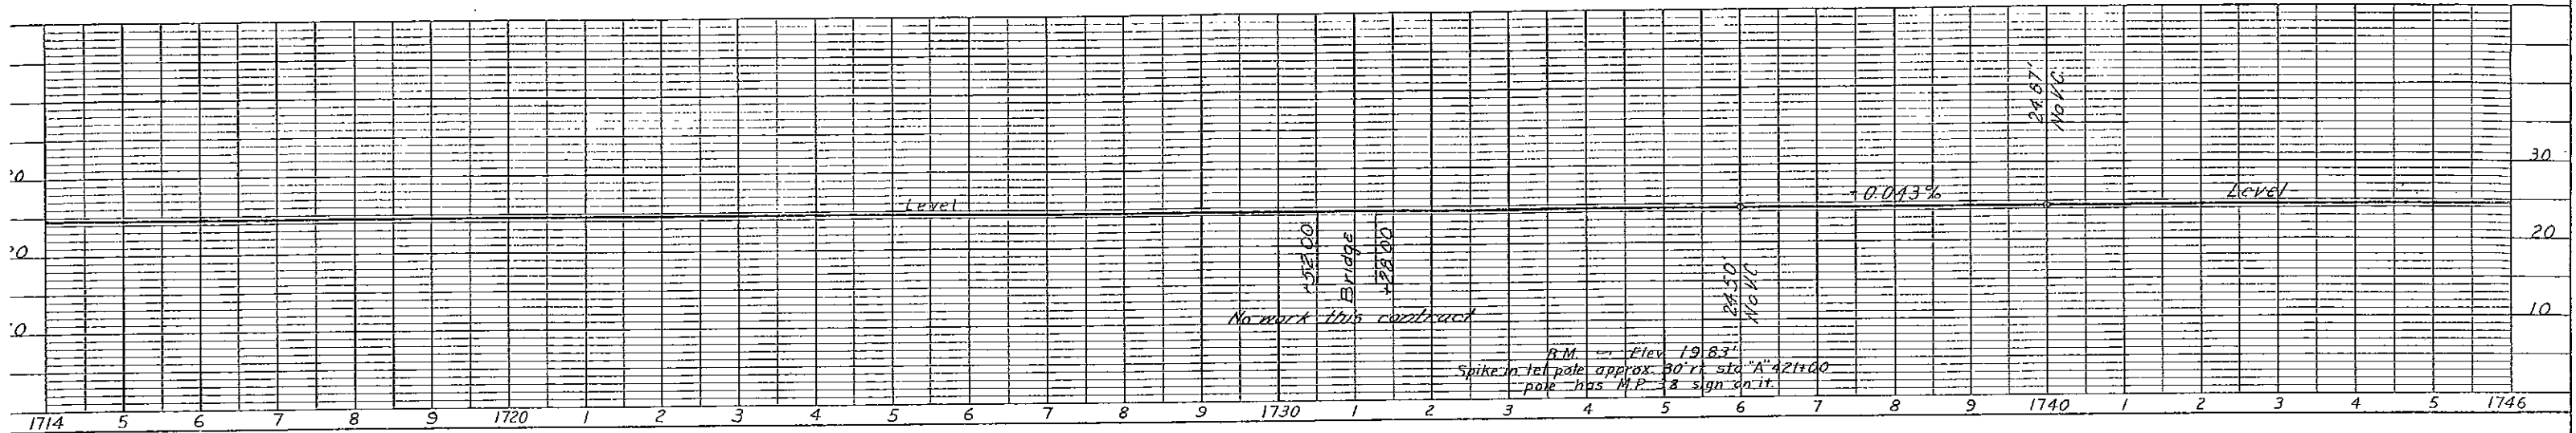 24.67'
No V.C.
30
-0.043%
Level
Level
20
+52.00
Bridge
+28.00
24.50'
No V.C.
No work this contract
10
B.M. - Elev. 19.83'
Spike in tel pole approx. 30' rt. sta "A" 421+00
pole has M.P. 38 sign on it.
1714 5 6 7 8 9 1720 1 2 3 4 5 6 7 8 9 1730 1 2 3 4 5 6 7 8 9 1740 1 2 3 4 5 1746